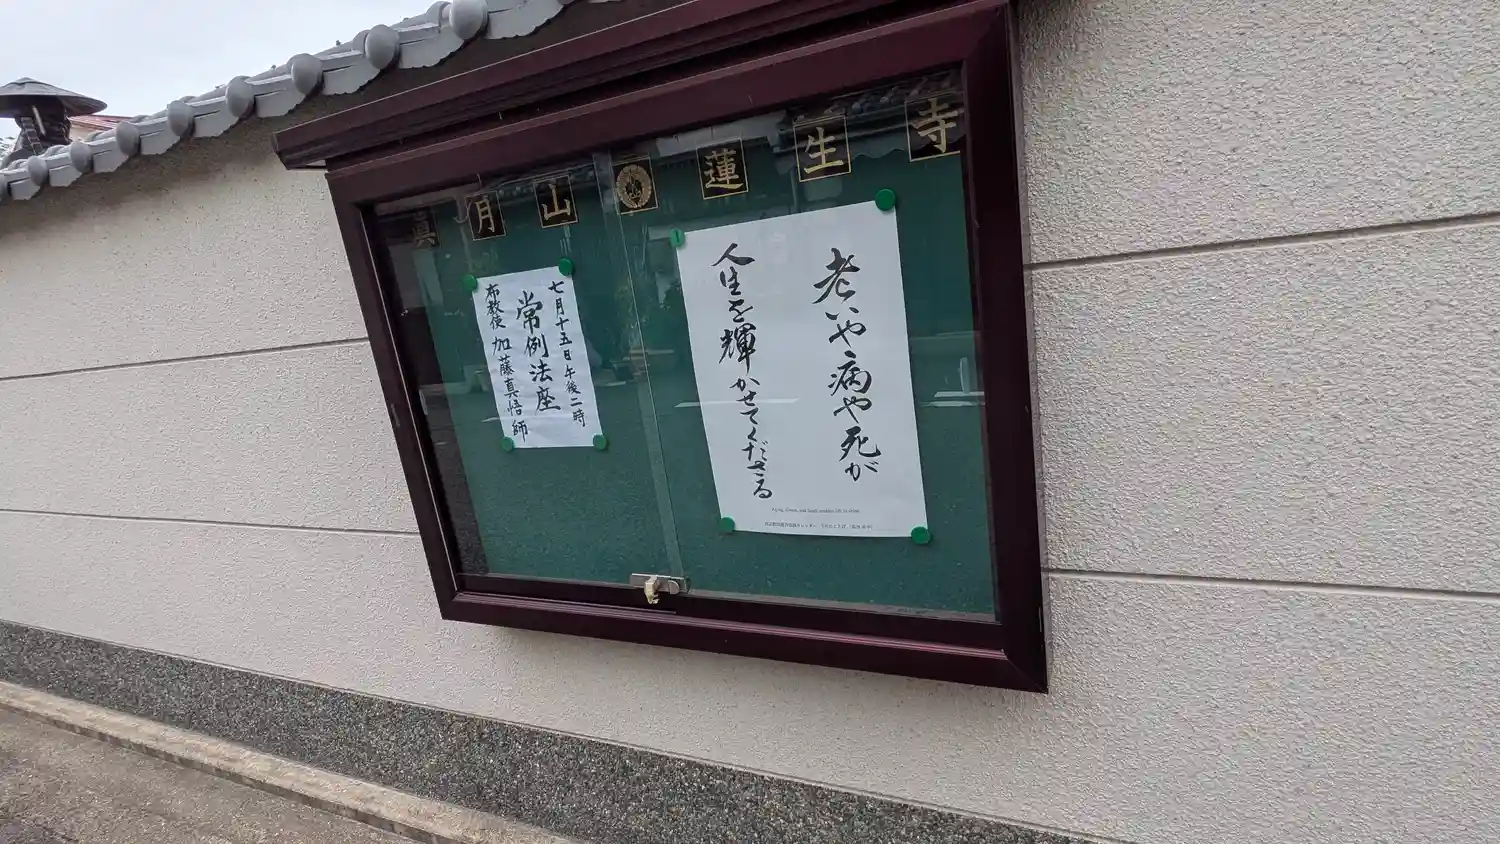 眞月山 蓮生寺
老いや病や死が
人生を輝かせてくださる
七月十五日午後二時
常例法座
布教使 加藤真悟師